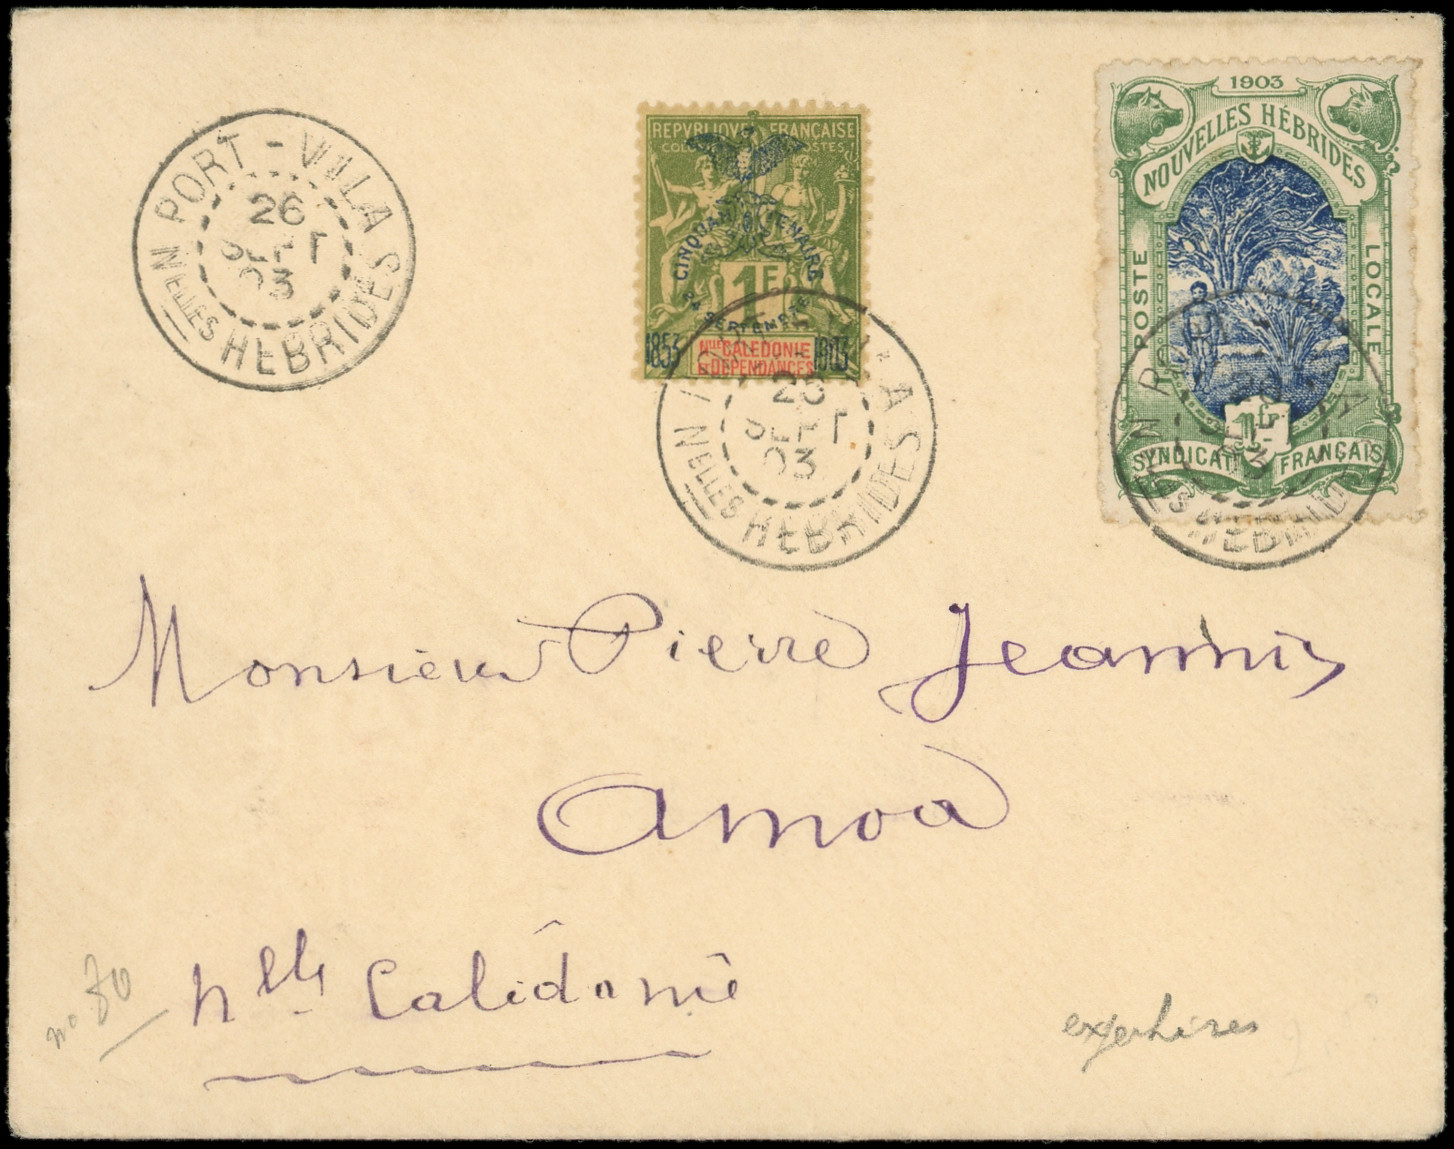 PORT-VILA
26
SEPT
03
Nelles HEBRIDES
REPVBLIQVE FRANÇAISE
CINQUANTENAIRE
24 SEPTEMBRE
1F
1853 1903
Nlle CALEDONIE
ET DEPENDANCES
SEPT
03
Nelles HEBRIDES
1903
NOUVELLES HÉBRIDES
POSTE LOCALE
1fr
SYNDICAT FRANÇAIS
HEBRIDES
Monsieur Pierre Jeannin
Amoa
Nlle Calédonie
no 80